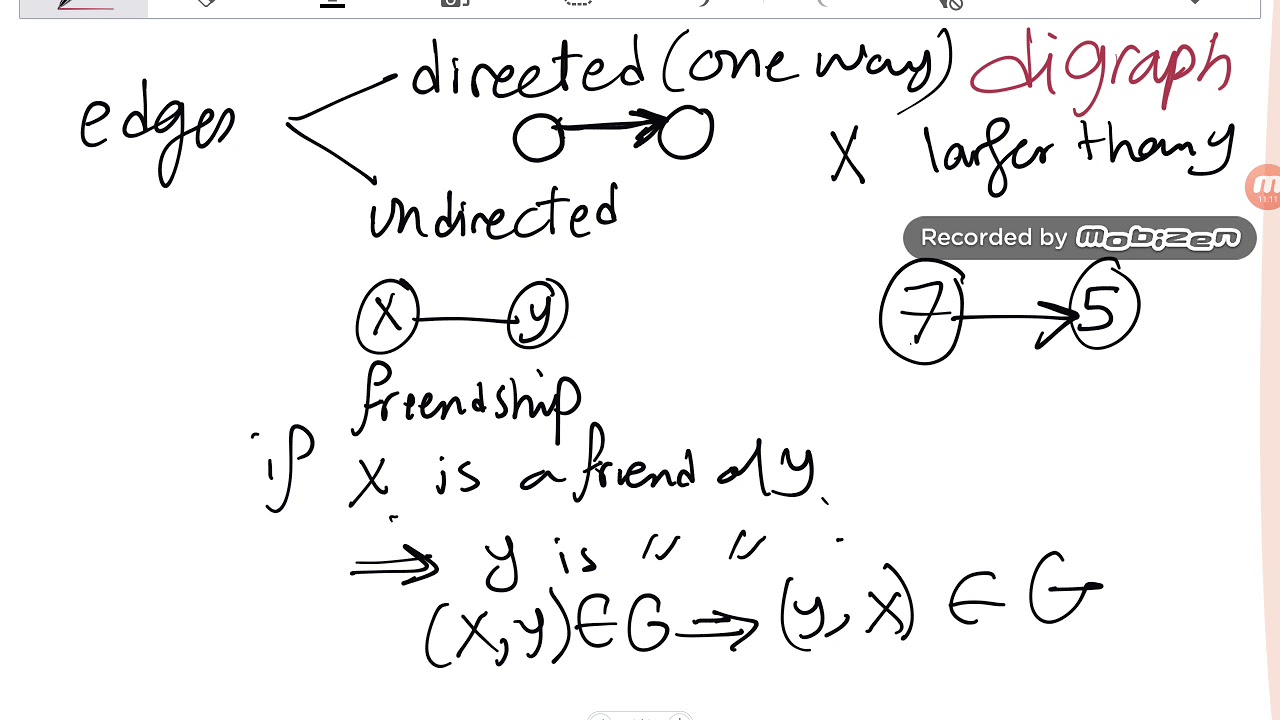 directed (one way) digraph
edges
X larger than y
undirected
Recorded by mobizen
11:11
X y
7 5
friendship
if X is a friend of y
⇒ y is 〃 〃
(X,y)∈G ⇒ (y,x) ∈ G